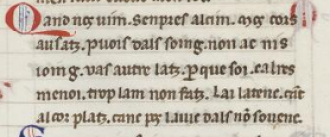 Qand neg uim. Senpres alcim. mas cons
au satz. puois dals soing. non ac nis
ioing. uas autre latz. Per que soi. ealres
menoi. trop lam non fatz. Lai latene. cant
al cor platz. cane per lauie dals no souene.